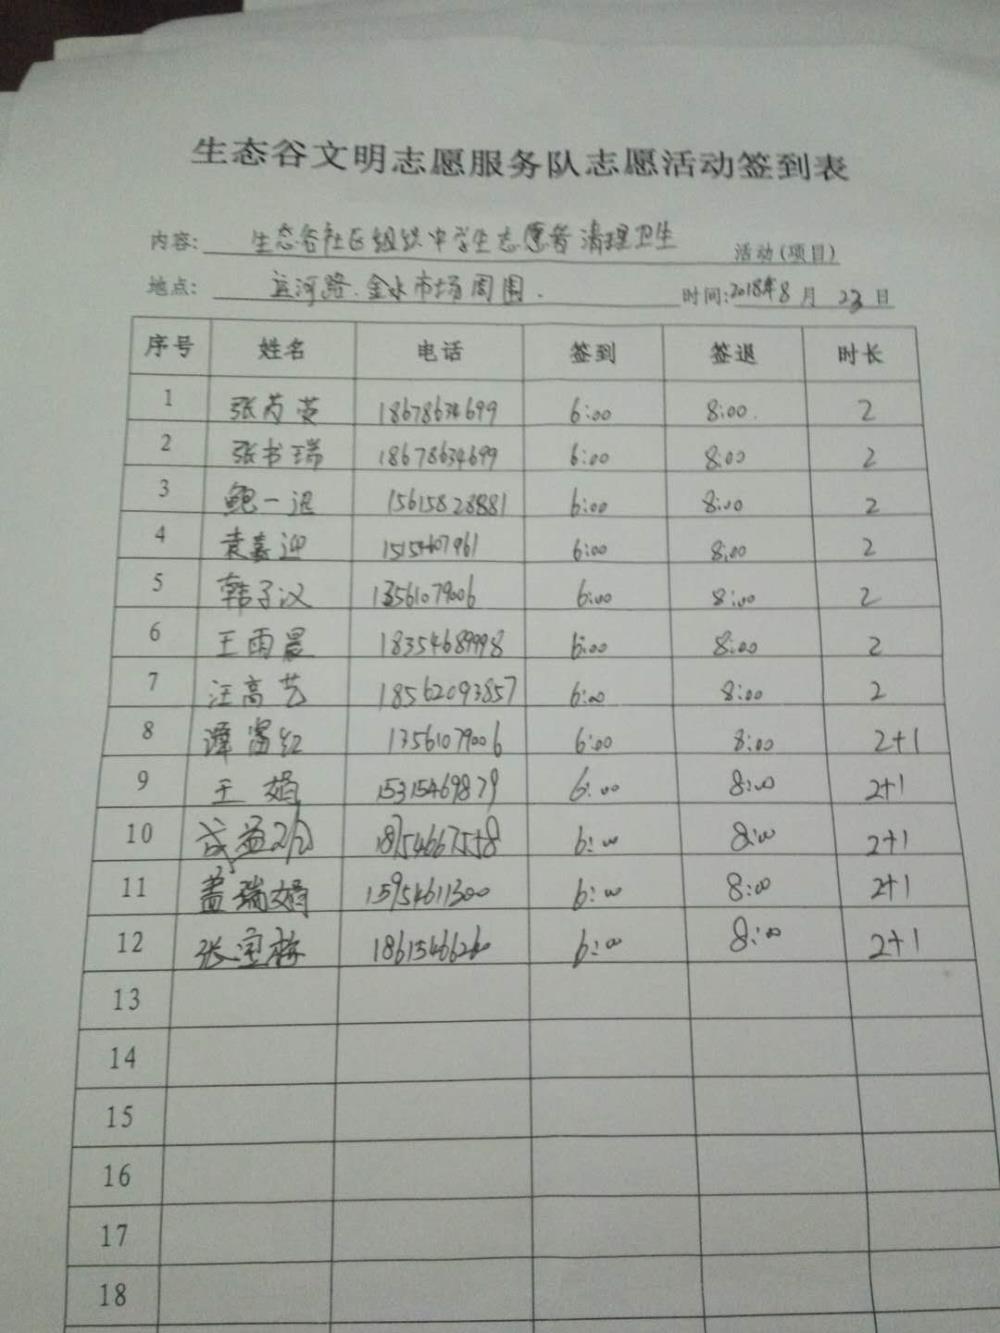 生态谷文明志愿服务队志愿活动签到表
内容: 生态谷社区组织中学生志愿者清理卫生 活动(项目)
地点: 运河路.金水市场周围. 时间:2018年8月23日
序号 姓名 电话 签到 签退 时长
1 张芮英 18678634699 6:00 8:00 2
2 张书瑞 18678634699 6:00 8:00 2
3 鲍一 15615828881 6:00 8:00 2
4 袁嘉迎 15154607961 6:00 8:00 2
5 韩子汉 13561079006 6:00 8:00 2
6 王雨晨 18354689998 6:00 8:00 2
7 汪高艺 18562093857 6:00 8:00 2
8 谭富红 13561079006 6:00 8:00 2+1
9 王娟 15315469879 6:00 8:00 2+1
10 18754667558 6:00 8:00 2+1
11 盖瑞娟 15954611300 6:00 8:00 2+1
12 张宝梅 6:00 8:00 2+1
13
14
15
16
17
18